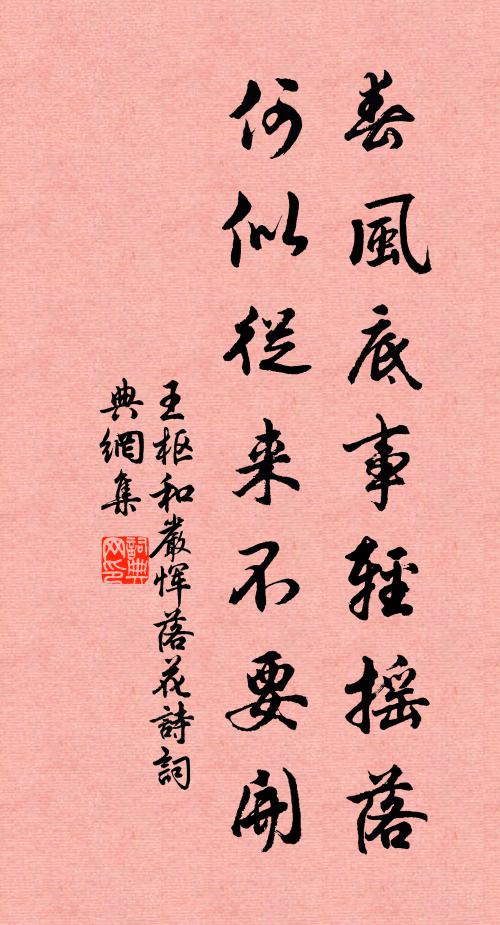 春風底事輕搖落
何似從来不要開
王枢和嚴惲落花詩詞
典網集
詞典
网印